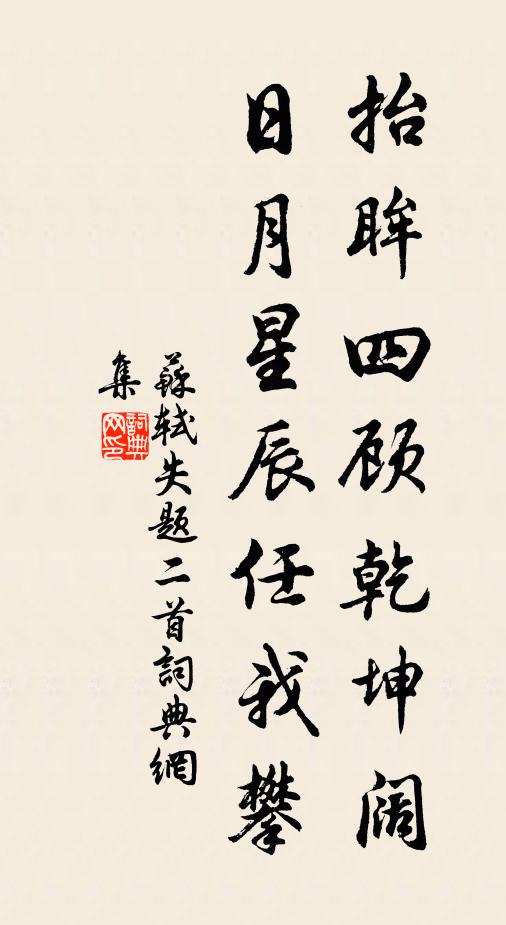 抬眸四顾乾坤阔
日月星辰任我攀
蘇轼失题二首詞典網
集
詞典网印